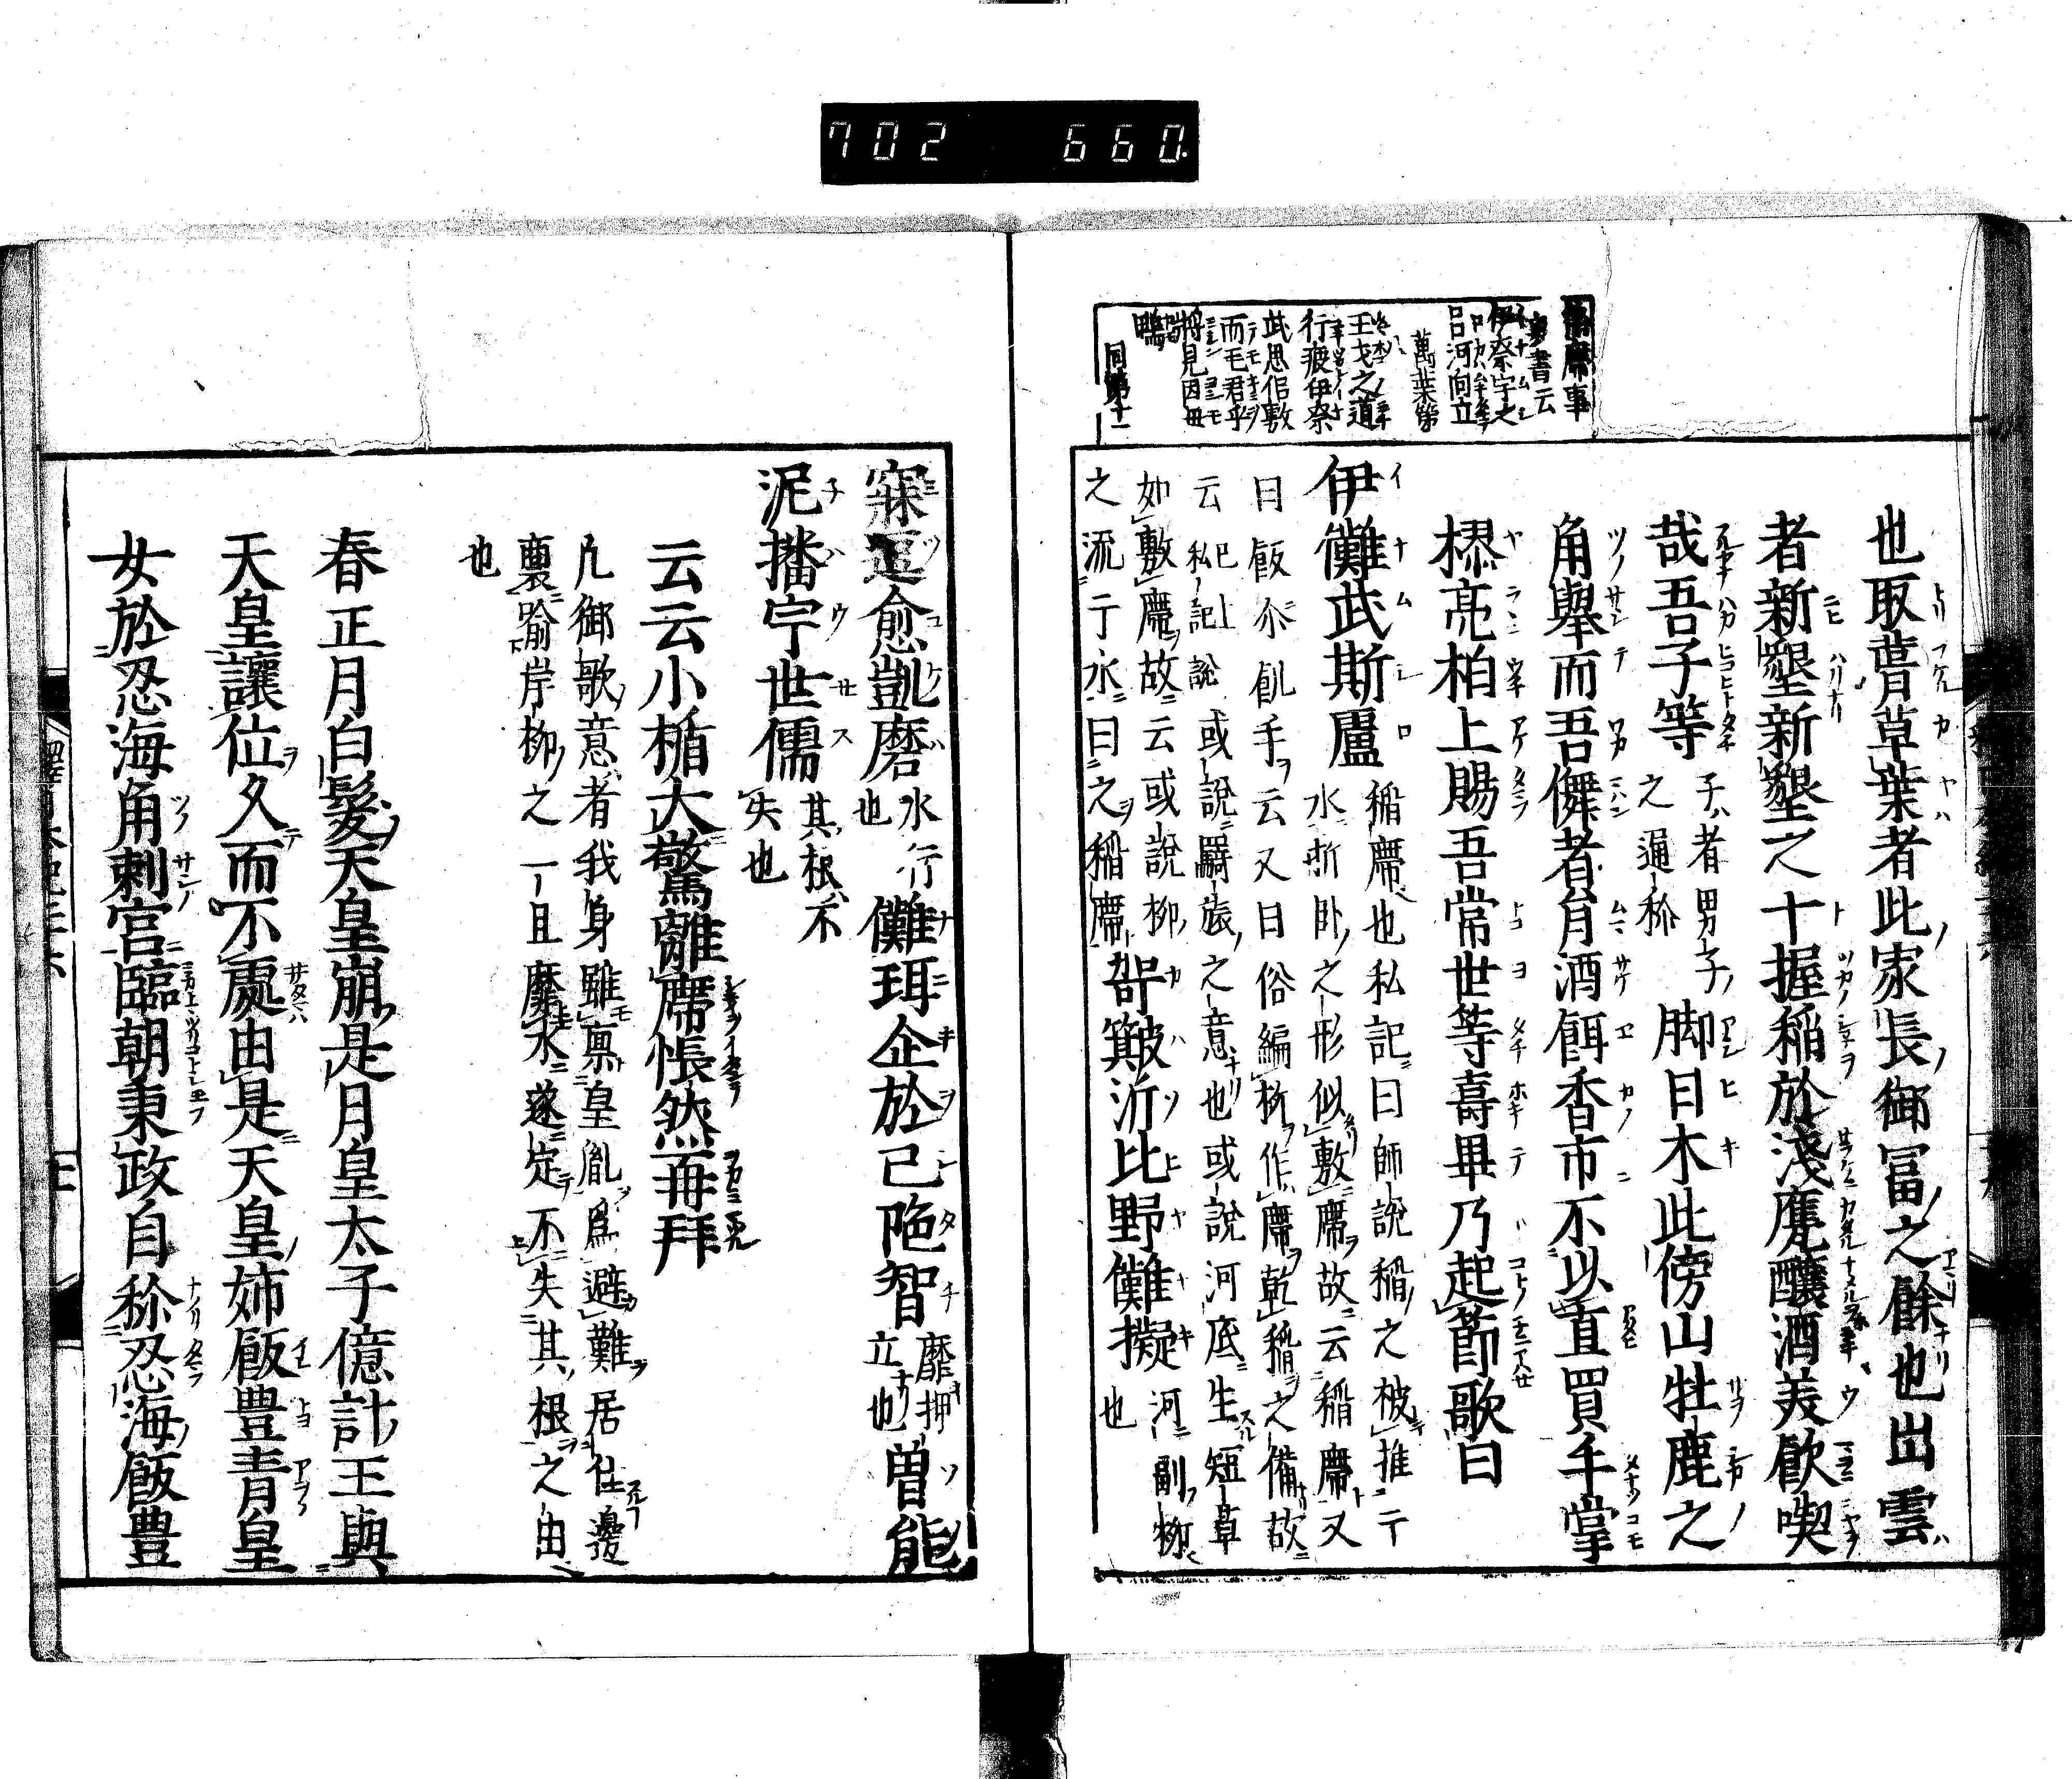 702 660
也取葺草葉者此家長御冨之餘也出雲
者新墾新墾之十握稲於淺甕釀酒美飮喫
哉吾子等
子者男子
之通称
脚日木此傍山牡鹿之
角擧而吾儛者旨酒餌香市不以直買手掌
摎亮柏上賜吾常世等壽畢乃起節歌曰
伊儺武斯盧
稲席也私記曰師説稲之被推二
水折臥之形似敷席故云稲席又
曰飯尓飢手云又曰俗編柳作席乾稲之備故
云私記上説或説羇旅之意也或説河底生短草
如敷席故云或説柳
之流于水曰之稲席
呇簸泝比野儺擬
河副柳
也
寐逗愈凱磨
水行
也
儺珥企於己陁智
靡押
立也
曽能
泥播宇世儒
其根不
失也
云云小楯大驚離席悵然再拜
凡御歌意者我身雖禀皇胤爲避難居住邊
裏喩岸柳之一旦靡水遂定不失其根之由
也
春正月白髪天皇崩是月皇太子億計王與
天皇讓位久而不處由是天皇姉飯豊青皇
女於忍海角刺宮臨朝秉政自称忍海飯豊
席事
書云
伊奈宇之
呂河向立
萬葉第
王戈之道
行疲伊奈
武思侶敷
而毛君乎
將見因毋
鴨
同第十一